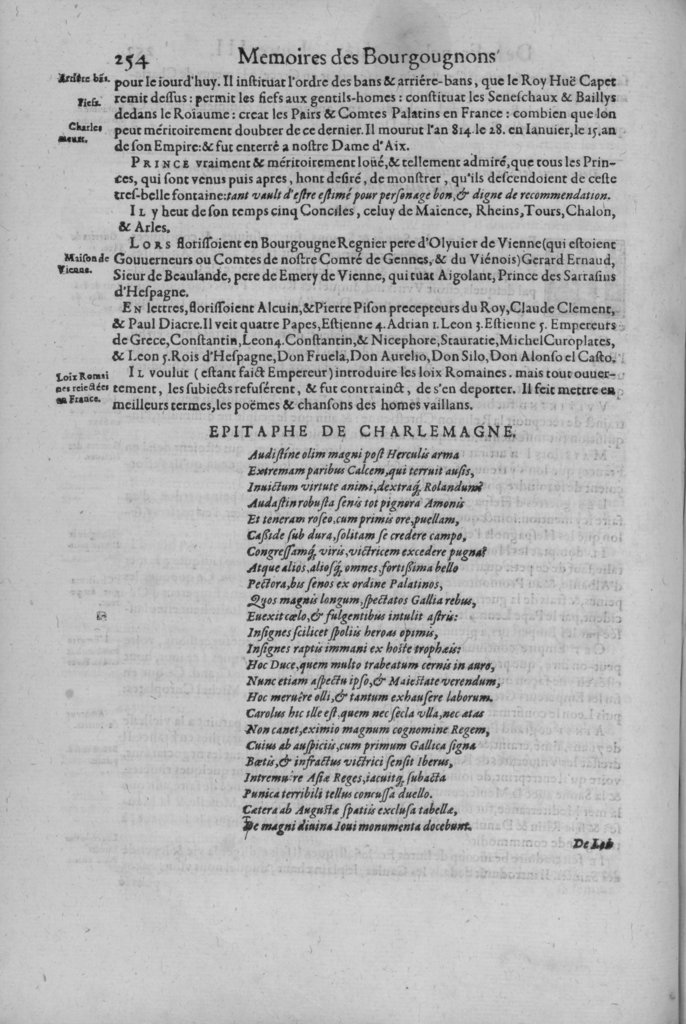 254 Memoires des Bourgougnons
Arriére bãs.
pour le iourd'huy. Il instituat l'ordre des bans & arriére-bans, que le Roy Huë Capet
Fiefs.
remit dessus : permit les fiefs aux gentils-homes : constituat les Seneschaux & Baillys
dedans le Roiaume : creat les Pairs & Comtes Palatins en France : combien que lon
Charles meurt.
peut méritoirement doubter de ce dernier. Il mourut l'an 814. le 28. en Ianuier, le 15. an
de son Empire: & fut enterré a nostre Dame d'Aix.
PRINCE vraiment & méritoirement loüé, & tellement admiré, que tous les Prin-
ces, qui sont venus puis apres, hont desiré, de monstrer, qu'ils descendoient de ceste
tres-belle fontaine: tant vault d'estre estimé pour personage bon, & digne de recommendation.
IL y heut de son temps cinq Conciles, celuy de Maience, Rheins, Tours, Chalon,
& Arles.
LORS florissoient en Bourgougne Regnier pere d'Olyuier de Vienne (qui estoient
Maison de Vienne.
Gouuerneurs ou Comtes de nostre Comté de Gennes, & du Viénois) Gerard Ernaud,
Sieur de Beaulande, pere de Emery de Vienne, qui tuat Aigolant, Prince des Sarrasins
d'Hespagne.
EN lettres, florissoient Alcuin, & Pierre Pison precepteurs du Roy, Claude Clement,
& Paul Diacre. Il veit quatre Papes, Estienne 4. Adrian 1. Leon 3. Estienne 5. Empereurs
de Grece, Constantin, Leon 4. Constantin, & Nicephore, Stauratie, Michel Curoplates,
& Leon 5. Rois d'Hespagne, Don Fruela, Don Aurelio, Don Silo, Don Alonso el Casto.
Loix Romaines reiectées en France.
IL voulut (estant faict Empereur) introduire les loix Romaines. mais tout ouuer-
tement, les subiects refusérent, & fut contrainct, de s'en deporter. Il feit mettre en
meilleurs termes, les poëmes & chansons des homes vaillans.
EPITAPHE DE CHARLEMAGNE.
Audistine olim magni post Herculis arma
Extremam paribus Calcem, qui terruit ausis,
Inuictum virtute animi, dextraq́; Rolandum?
Audastin robusta senis tot pignora Amonis
Et teneram roseo, cum primis ore, puellam,
Casside sub dura, solitam se credere campo,
Congressamq́; viris, victricem excedere pugna?
Atque alios, aliosq́; omnes, fortissima bello
Pectora, bis senos ex ordine Palatinos,
Quos magnis longum, spectatos Gallia rebus,
Euexit cœlo, & fulgentibus intulit astris:
Insignes scilicet spoliis heroas opimis,
Insignes raptis immani ex hoste trophæis:
Hoc Duce, quem multo trabeatum cernis in auro,
Nunc etiam aspectu ipso, & Maiestate verendum,
Hoc meruêre olli, & tantum exhausere laborum.
Carolus hic ille est, quem nec secla vlla, nec ætas
Non canet, eximio magnum cognomine Regem,
Cuius ab auspiciis, cum primum Gallica signa
Bœtis, & infractus victrici sensit Iberus,
Intremuêre Asiæ Reges, iacuitq́; subacta
Punica terribili tellus concussa duello.
Cætera ab Augustæ spatiis exclusa tabellæ,
De magni diuina Ioui monumenta docebunt.
De Loÿ